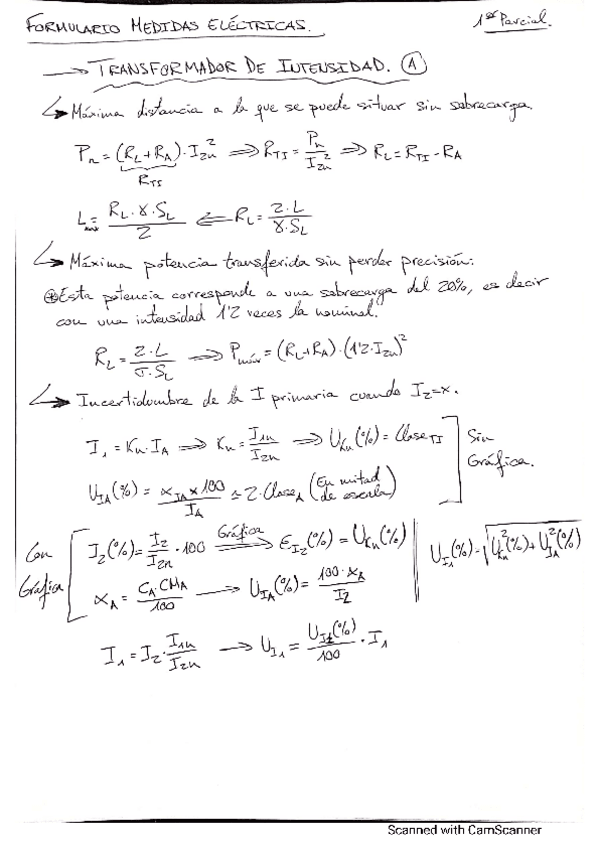 FORMULARIO MEDIDAS ELÉCTRICAS.
1er Parcial.
→ TRANSFORMADOR DE INTENSIDAD. ①
↳ Máxima distancia a la que se puede situar sin sobrecarga.
Pn = (RL+RA)·I2n² ⇒ RTI = Pn/I2n² ⇒ RL = RTI - RA
RTI
Lmax = RL·γ·SL/2 ⇐ RL = 2·L/γ·SL
↳ Máxima potencia transferida sin perder precisión:
⊛ Esta potencia corresponde a una sobrecarga del 20%, es decir
con una intensidad 1'2 veces la nominal.
RL = 2·L/σ·SL ⇒ Pmáx = (RL+RA)·(1'2·I2n)²
↳ Incertidumbre de la I primaria cuando I2=x.
I1 = Kn·IA ⇒ Kn = I1n/I2n ⇒ UKn(%) = ClaseTI
Sin
Gráfica.
UIA(%) = αIA×100/IA ≃ 2·ClaseA (En mitad de escala)
Con
Gráfica
I2(%) = I2/I2n·100 ⇒ Gráfica εI2(%) = UKn(%)
UI1(%) = √UKn²(%) + UIA²(%)
αA = CA·CMA/100 → UIA(%) = 100·αA/I2
I1 = I2·I1n/I2n → UI1 = UI1(%)/100·I1
Scanned with CamScanner